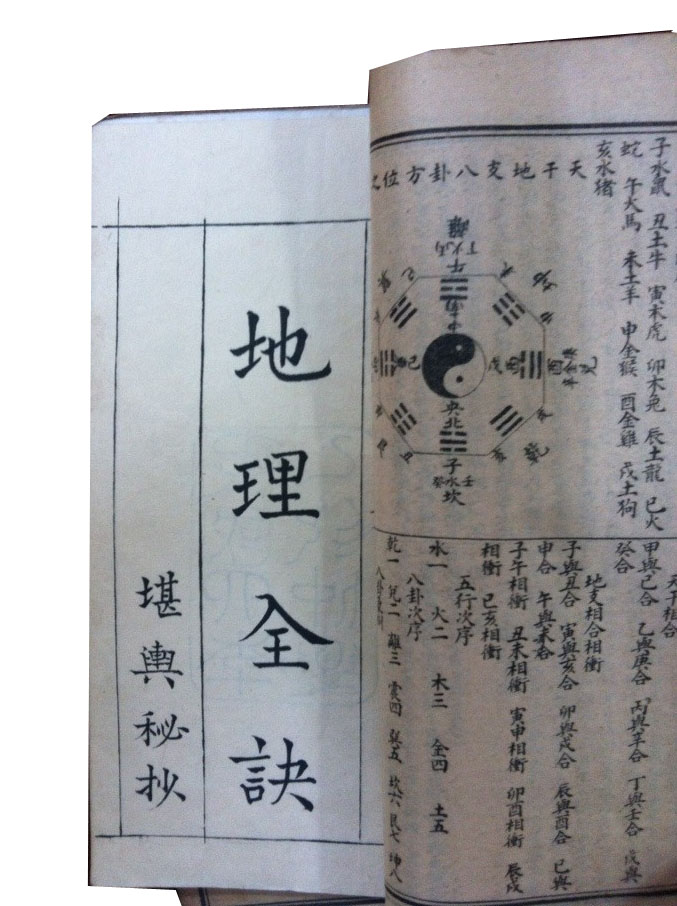 子水鼠 丑土牛 寅木虎 卯木兔 辰土龍 巳火
蛇 午火馬 未土羊 申金猴 酉金雞 戌土狗
亥水猪
天干地支八卦方位
離
午
南
中
央北
子
癸水壬
坎
戊
西
酉
兌
己
天干相合
甲與己合 乙與庚合 丙與辛合 丁與壬合 戊與
癸合
地支相合相衝
子與丑合 寅與亥合 卯與戌合 辰與酉合 巳與
申合 午與未合
子午相衝 丑未相衝 寅申相衝 卯酉相衝 辰戌
相衝 巳亥相衝
五行次序
水一 火二 木三 金四 土五
八卦次序
乾一 兌二 離三 震四 巽五 坎六 艮七 坤八
地理全訣
堪輿秘抄